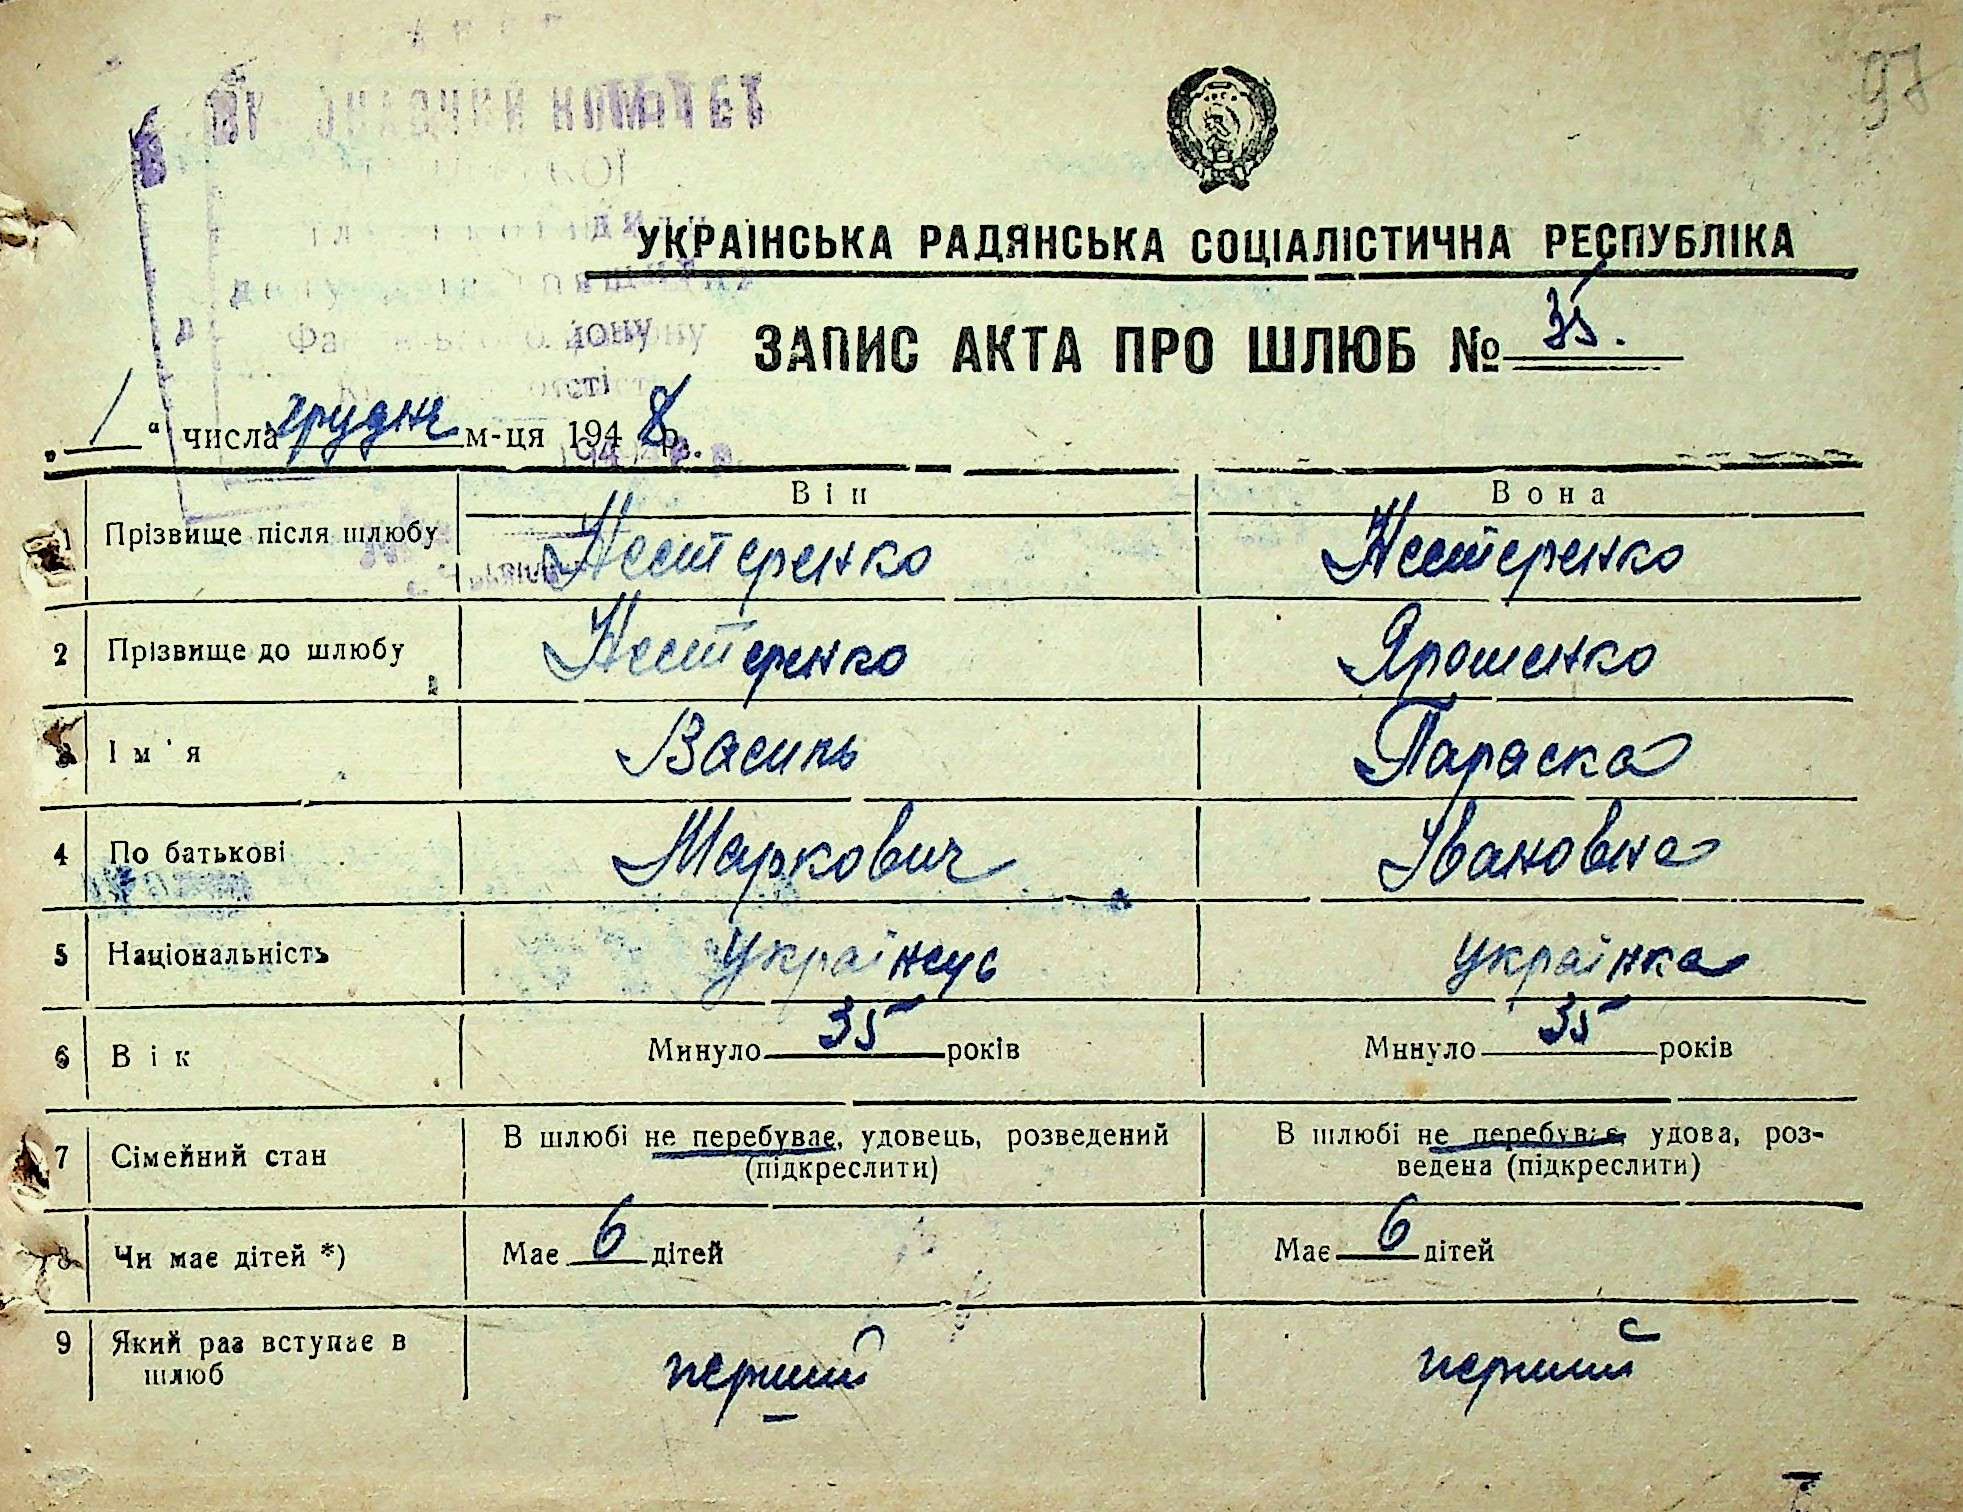 97
ВИКОНАВЧИЙ КОМІТЕТ
УКРАЇНСЬКА РАДЯНСЬКА СОЦІАЛІСТИЧНА РЕСПУБЛІКА
ЗАПИС АКТА ПРО ШЛЮБ № 35.
„1“ числа грудня м-ця 1948 р.
Він Вона
1 Прізвище після шлюбу Нестеренко Нестеренко
2 Прізвище до шлюбу Нестеренко Ярошенко
3 Ім'я Василь Параска
4 По батькові Маркович Івановна
5 Національність Українець Українка
6 Вік Минуло 35 років Минуло 35 років
7 Сімейний стан В шлюбі не перебуває, удовець, розведений В шлюбі не перебуває, удова, роз-
(підкреслити) ведена (підкреслити)
8 Чи має дітей *) Має 6 дітей Має 6 дітей
9 Який раз вступає в перший перший
шлюб